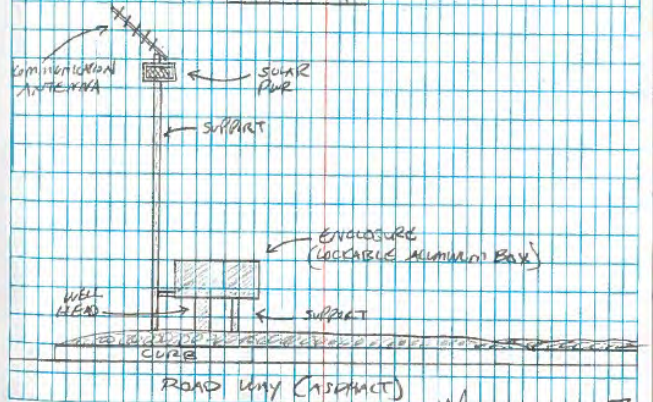 COMMUNICATION
ANTENNA
SOLAR
PWR
SUPPORT
ENCLOSURE
(LOCKABLE ALUMINUM BOX)
WELL
HEAD
SUPPORT
CURB
ROAD WAY (ASPHALT)